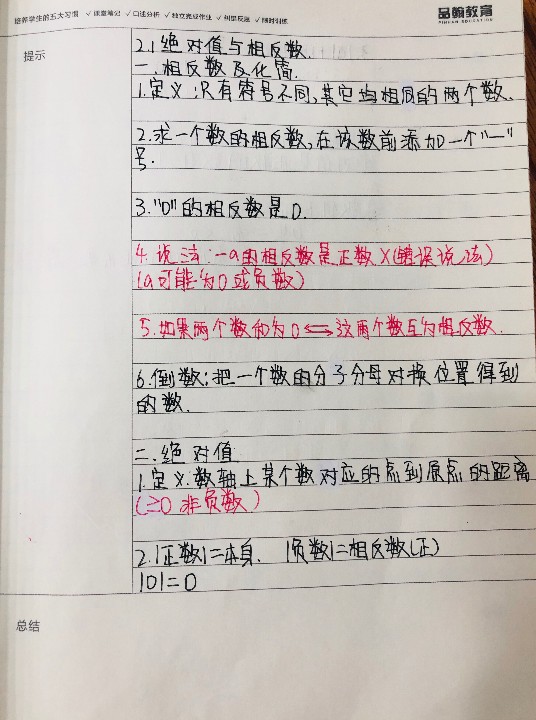 培养学生的五大习惯 ✓课堂笔记 ✓口述分析 ✓独立完成作业 ✓纠错反思 ✓限时训练
品翰教育
PINHAN EDUCATION
提示
2.1 绝对值与相反数.
一.相反数及化简.
1.定义:只有符号不同,其它均相同的两个数.
2.求一个数的相反数,在该数前添加一个"—"
号.
3."0"的相反数是0.
4.说法:-a的相反数是正数×(错误说法)
(a可能为0或负数)
5.如果两个数和为0⟺这两个数互为相反数.
6.倒数:把一个数的分子分母对换位置得到
的数.
二.绝对值
1.定义:数轴上某个数对应的点到原点的距离
(≥0 非负数)
2.|正数|=本身. |负数|=相反数(正)
|0|=0
总结